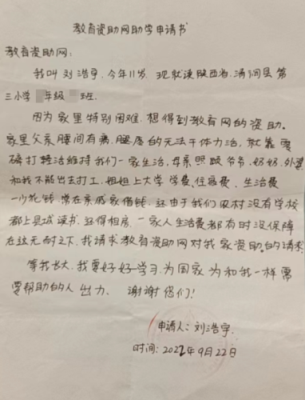 教育资助网助学申请书
教育资助网：
我叫刘浩宇，今年11岁，现就读陕西省清涧县第
三小学 年级 班。
因为家里特别困难，想得到教育网的资助。
家里父亲腰间有病，腿 的无法干体力活，就靠零
碎打 活维持我们一家生活，母亲照顾爷爷、奶奶、外婆
和我不能出去打工，姐姐上大学学费，住宿费，生活费
一 ，常在亲戚家借钱。 由于我们农村没有学校
都上县城读书。 得租房，一家人生活费都有时没保障
在这无耐之下，我请求教育资助网对我家资助的请求
等我长大，我要好好学习，为国家为和我一样需
要帮助的人出力。谢谢您们！
申请人：刘浩宇
时间：2022年9月22日